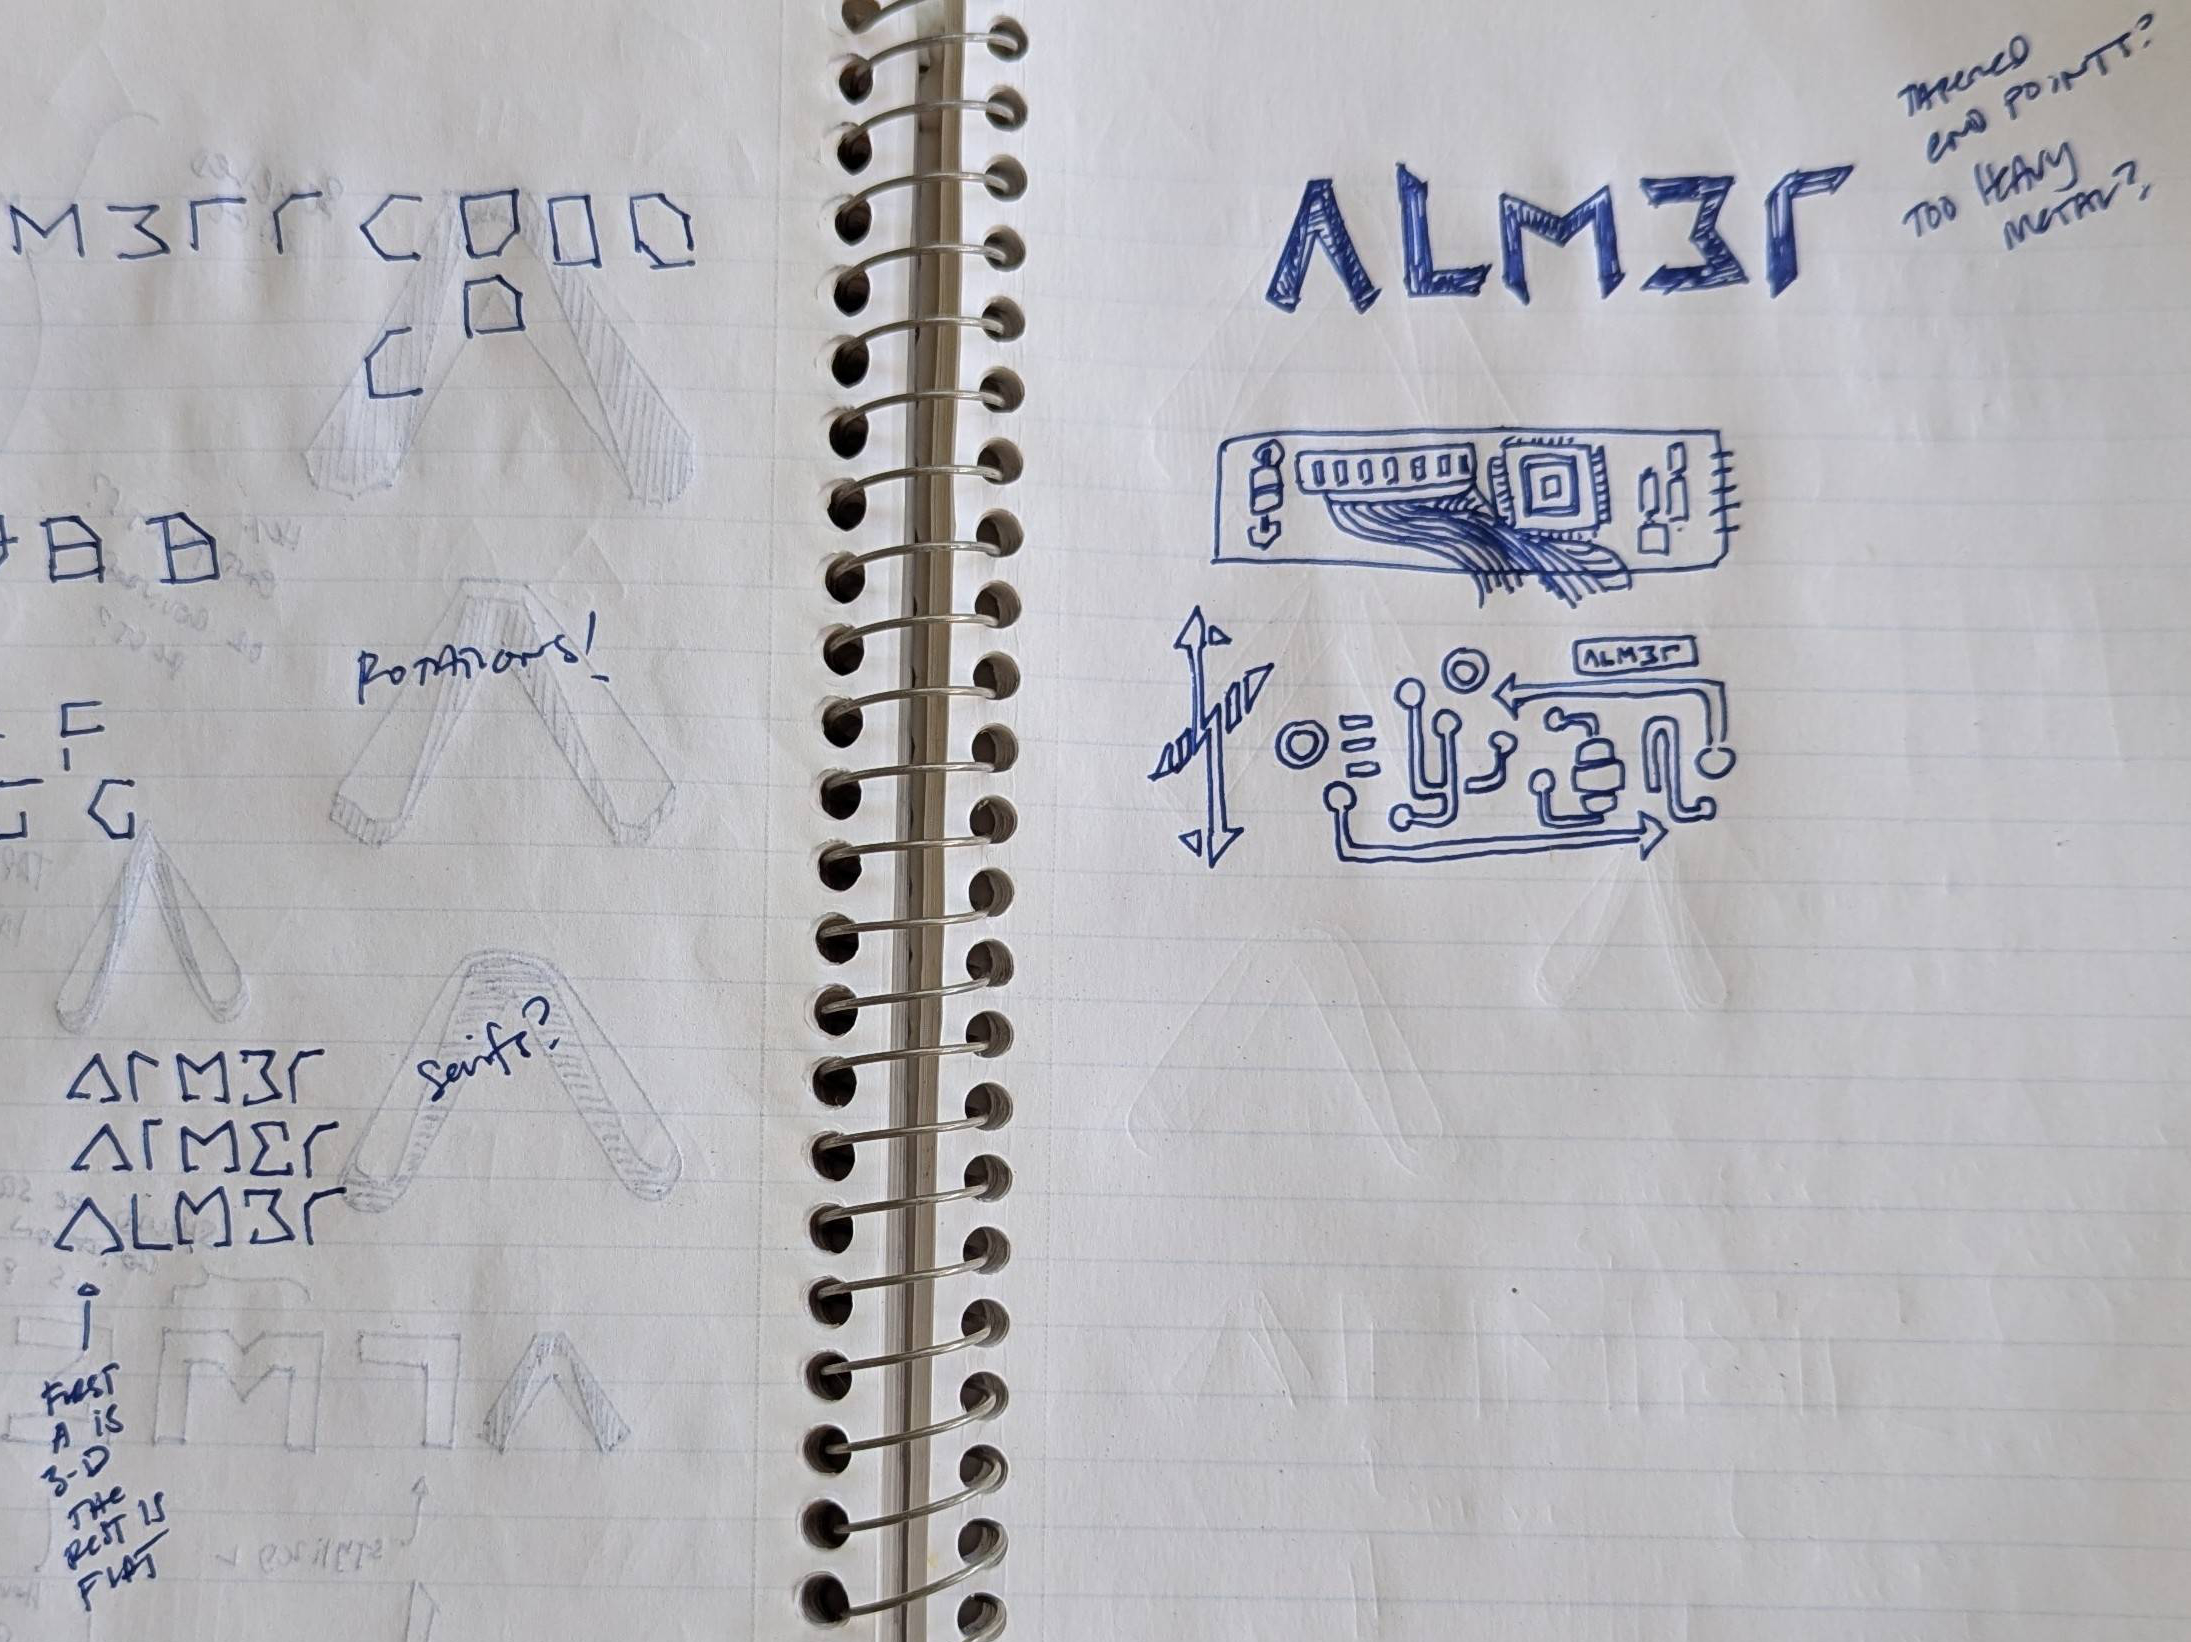 M 3 Γ Γ C D 0 D
D
C
B B
ROTATIONS!
F
G
serifs?
ΛΓM3Γ
ΛΓMΣΓ
ΛLM3Γ
i
FIRST
A IS
3-D
THE
REST IS
FLAT
TAPERED
END POINTS?
TOO HEAVY
METAL?
ΛLM3Γ
ΛLM3Γ